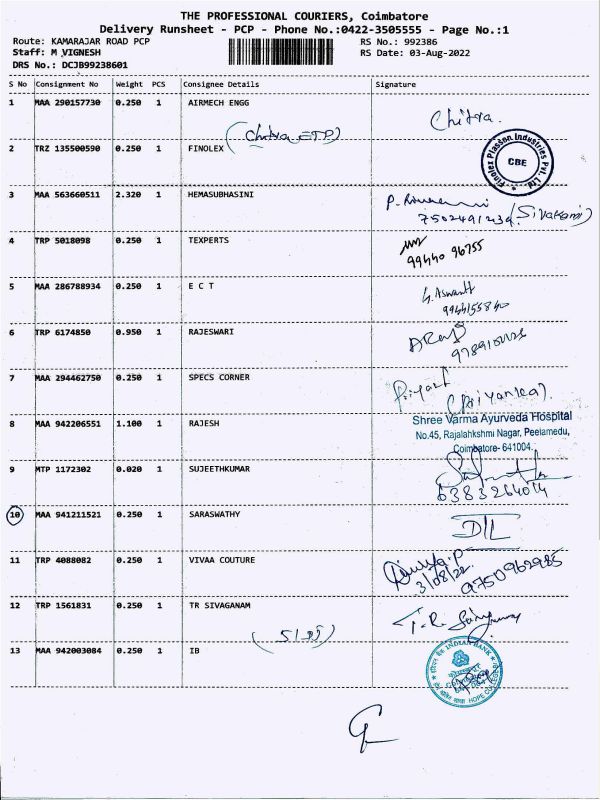 THE PROFESSIONAL COURIERS, Coimbatore
Delivery Runsheet - PCP - Phone No.:0422-3505555 - Page No.:1
Route: KAMARAJAR ROAD PCP
RS No.: 992386
Staff: M VIGNESH
RS Date: 03-Aug-2022
DRS No.: DCJB99238601
S No Consignment No Weight PCS Consignee Details Signature
1 MAA 290157730 0.250 1 AIRMECH ENGG Chitra.
(Chitra ETP)
2 TRZ 135500590 0.250 1 FINOLEX
Finolex Plasson Industries Pvt. Ltd
CBE
3 MAA 563660511 2.320 1 HEMASUBHASINI
(Sivakami)
4 TRP 5018098 0.250 1 TEXPERTS
99440 96755
5 MAA 286788934 0.250 1 E C T
G. Aswanth
9944155840
6 TRP 6174850 0.950 1 RAJESWARI
7 MAA 294462750 0.250 1 SPECS CORNER
(Priyanka).
8 MAA 942206551 1.100 1 RAJESH
Shree Varma Ayurveda Hospital
No.45, Rajalahkshmi Nagar, Peelamedu,
Coimbatore- 641004.
9 MTP 1172302 0.020 1 SUJEETHKUMAR
6383264014
10 MAA 941211521 0.250 1 SARASWATHY
DIL
11 TRP 4088082 0.250 1 VIVAA COUTURE
3/08/22 9750962985
12 TRP 1561831 0.250 1 TR SIVAGANAM
13 MAA 942003084 0.250 1 IB
INDIAN BANK
HOPE COLLEGE